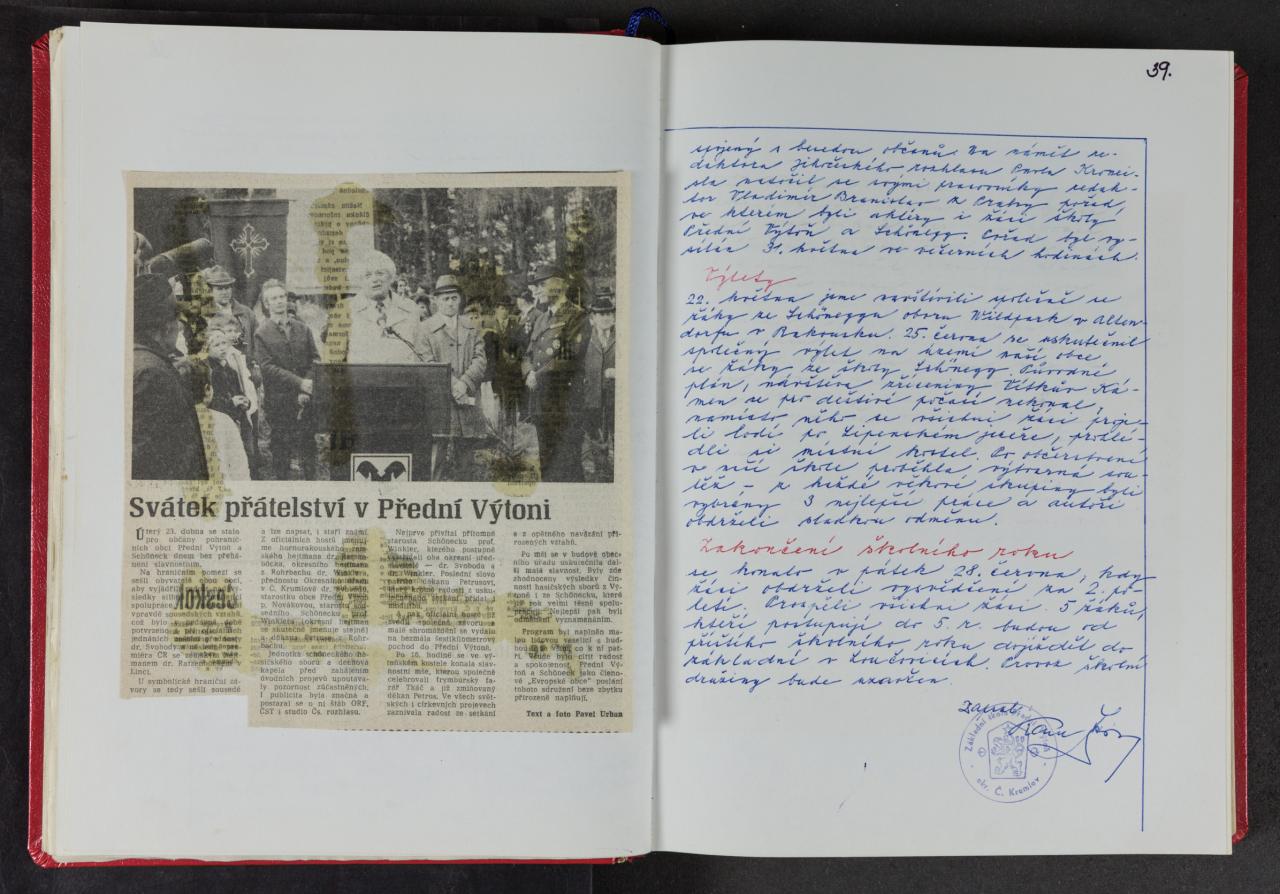 Svátek přátelství v Přední Výtoni
Úterý 23. dubna se stalo
pro občany pohranič-
ních obcí Přední Výtoň a
Schöneck dnem bez přehá-
nění slavnostním.
Na hraničním pomezí se
sešli obyvatelé obou obcí,
aby vyjádřili
spolupráce
vpravdě sousedských vztahů,
což bylo
potvrzeno při oficiálních
jednáních
dr. Svobody
miéra ČR se zemským hejt-
manem dr. Ratzenböckem v
Linci.
U symbolické hraniční zá-
vory se tedy sešli sousedé
a lze napsat, i staří známí
Z oficiálních hostů
me hornorakouského zem-
ského hejtmana dr. Ratzen-
böcka, okresního hejtmana
z Rohrbachu dr. Winklera,
přednostu Okresního úřadu
v Č. Krumlově dr. Svobodu,
starostku obce Přední Výtoň
p. Novákovou, starostu sou-
sedního Schönecku prof.
Winklera (okresní hejtman
se skutečně jmenuje stejně)
a děkana Petruse z Rohr-
bachu.
Jednotka schöneckého ha-
sičského sboru a dechová
kapela před zahájením
úvodních projevů upoutava-
ly pozornost zúčastněných.
I publicita byla značná a
postaral se o ni štáb ORF,
ČST i studio Čs. rozhlasu.
Nejprve přivítal přítomné
starosta Schönecku prof.
Winkler, kterého postupně
vystřídali oba okresní před-
stavitelé — dr. Svoboda a
dr. Winkler. Poslední slovo
patřilo děkanu Petrusovi,
který kromě radosti z usku-
tečněného setkání přidal i
modlitbu.
A pak oficiální hosté již
zvedli společně závoru a
malé shromáždění se vydalo
na bezmála šestikilometrový
pochod do Přední Výtoně.
Po 16. hodině se ve vý-
toňském kostele konala slav-
nostní mše, kterou společně
celebroval frymburský fa-
rář Tkáč a již zmiňovaný
děkan Petrus. Ve všech svět-
ských i církevních projevech
zaznívala radost ze setkání
a z opětného navázání při-
rozených vztahů.
Po mši se v budově obec-
ního úřadu uskutečnila dal-
ší malá slavnost. Byly zde
zhodnoceny výsledky čin-
nosti hasičských sborů z Vý-
toně i ze Schönecku, které
pak velmi těsně spolu-
pracují. Nejlepší pak byli
odměněni vyznamenáním.
Program byl naplněn ma-
lou lidovou veselicí s hud-
bou
Všude bylo cítit radost
a spokojenost. Přední Vý-
toň a Schöneck jako členo-
vé „Evropské obce“ poslání
tohoto sdružení beze zbytku
přirozeně naplňují.
Text a foto Pavel Urban
39.
spojený s besedou občanů. Na námět re-
daktora Jihočeského rozhlasu Pavla Kronei-
sla natočil se svými pracovníky redak-
tor Vladimír Branislav z Prahy pořad,
ve kterém byli aktéry i žáci školy
Přední Výtoň a Schönegg. Pořad byl vy-
sílán 31. května ve večerních hodinách.
Výlety
22. května jsme navštívili společně se
žáky ze Schöneggu oboru Wildpark v Alten-
dorfu v Rakousku. 25. června se uskutečnil
společný výlet na území naší obce
se žáky ze školy Schönegg. Původní
plán, návštěva zříceniny Vítkův Ká-
men se pro deštivé počasí nekonal,
namísto něho se všichni žáci proje-
li lodí po Lipenském jezeře, prohlé-
dli si místní kostel. Po občerstvení
v naší škole proběhla výtvarná sou-
těž - z každé věkové skupiny byli
vybrány 3 nejlepší práce a autoři
obdrželi sladkou odměnu.
Zakončení školního roku
se konalo v pátek 28. června, kdy
žáci obdrželi vysvědčení za 2. po-
letí. Prospěli všichni žáci. 5 žáků,
kteří postupují do 5. r. budou od
příštího školního roku dojíždět do
základní v Loučovicích. Provoz školní
družiny bude uzavřen.
Základní škola Přední Výtoň
okr. Č. Krumlov